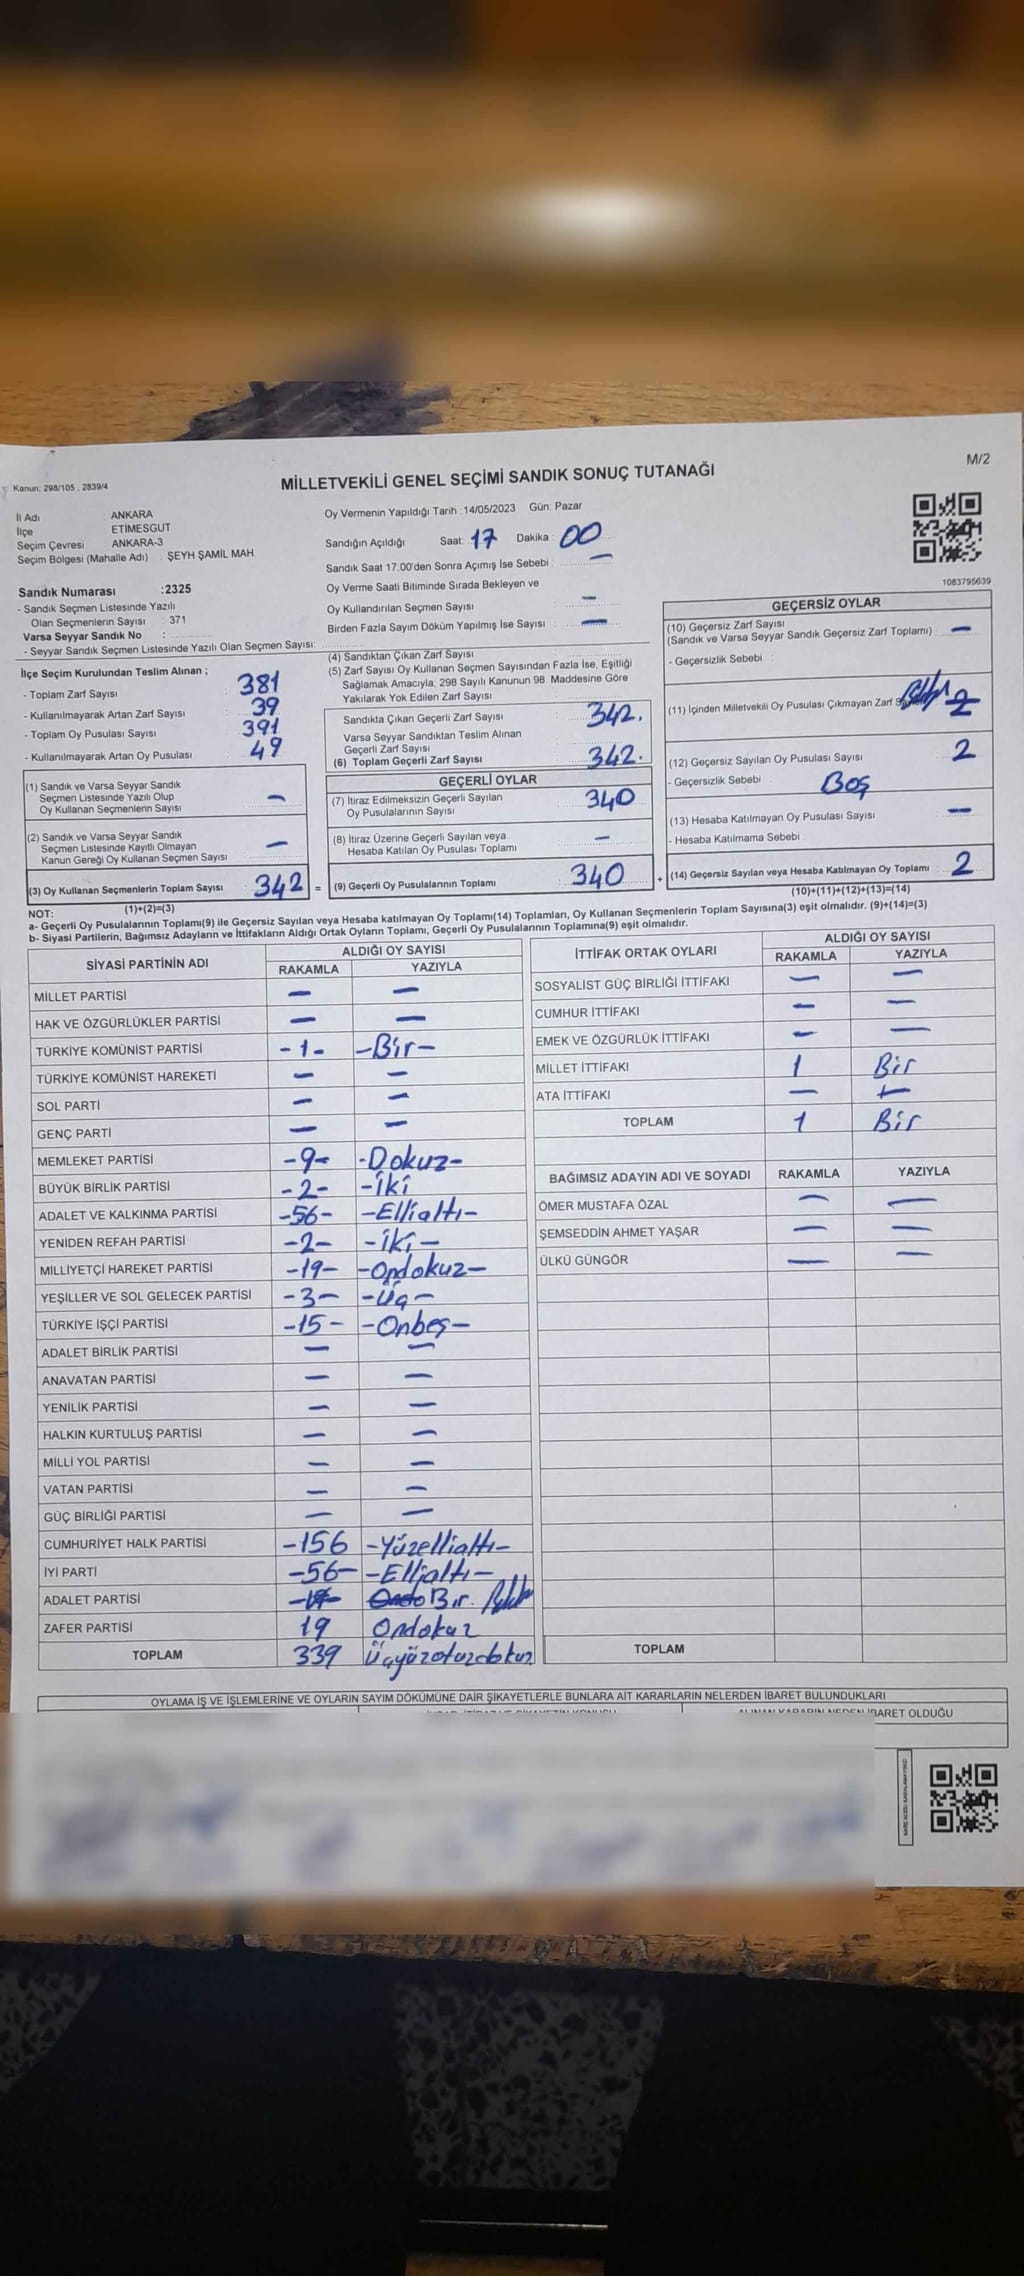 Kanun: 298/105 , 2839/4
MİLLETVEKİLİ GENEL SEÇİMİ SANDIK SONUÇ TUTANAĞI
M/2
İl Adı : ANKARA
İlçe : ETİMESGUT
Seçim Çevresi : ANKARA-3
Seçim Bölgesi (Mahalle Adı) : ŞEYH ŞAMİL MAH.
Sandık Numarası :2325
- Sandık Seçmen Listesinde Yazılı
Olan Seçmenlerin Sayısı : 371
Varsa Seyyar Sandık No :
- Seyyar Sandık Seçmen Listesinde Yazılı Olan Seçmen Sayısı:
Oy Vermenin Yapıldığı Tarih :14/05/2023 Gün: Pazar
Sandığın Açıldığı Saat: 17 Dakika : 00
Sandık Saat 17.00'den Sonra Açımış İse Sebebi : —
Oy Verme Saati Bitiminde Sırada Bekleyen ve
Oy Kullandırılan Seçmen Sayısı : —
Birden Fazla Sayım Döküm Yapılmış İse Sayısı : —
1083795639
İlçe Seçim Kurulundan Teslim Alınan ;
- Toplam Zarf Sayısı : 381
- Kullanılmayarak Artan Zarf Sayısı : 39
- Toplam Oy Pusulası Sayısı : 391
- Kullanılmayarak Artan Oy Pusulası : 49
(1) Sandık ve Varsa Seyyar Sandık
Seçmen Listesinde Yazılı Olup
Oy Kullanan Seçmenlerin Sayısı : —
(2) Sandık ve Varsa Seyyar Sandık
Seçmen Listesinde Kayıtlı Olmayan
Kanun Gereği Oy Kullanan Seçmen Sayısı : —
(3) Oy Kullanan Seçmenlerin Toplam Sayısı : 342 =
(1)+(2)=(3)
(4) Sandıktan Çıkan Zarf Sayısı :
(5) Zarf Sayısı Oy Kullanan Seçmen Sayısından Fazla İse, Eşitliği
Sağlamak Amacıyla; 298 Sayılı Kanunun 98. Maddesine Göre
Yakılarak Yok Edilen Zarf Sayısı :
Sandıkta Çıkan Geçerli Zarf Sayısı : 342.
Varsa Seyyar Sandıktan Teslim Alınan
Geçerli Zarf Sayısı :
(6) Toplam Geçerli Zarf Sayısı : 342.
GEÇERLİ OYLAR
(7) İtiraz Edilmeksizin Geçerli Sayılan
Oy Pusulalarının Sayısı : 340
(8) İtiraz Üzerine Geçerli Sayılan veya
Hesaba Katılan Oy Pusulası Toplamı : —
(9) Geçerli Oy Pusulalarının Toplamı : 340 +
GEÇERSİZ OYLAR
(10) Geçersiz Zarf Sayısı
(Sandık ve Varsa Seyyar Sandık Geçersiz Zarf Toplamı) : —
- Geçersizlik Sebebi :
(11) İçinden Milletvekili Oy Pusulası Çıkmayan Zarf 2
(12) Geçersiz Sayılan Oy Pusulası Sayısı : 2
- Geçersizlik Sebebi : Boş
(13) Hesaba Katılmayan Oy Pusulası Sayısı : —
- Hesaba Katılmama Sebebi :
(14) Geçersiz Sayılan veya Hesaba Katılmayan Oy Toplamı : 2
(10)+(11)+(12)+(13)=(14)
NOT:
a- Geçerli Oy Pusulalarının Toplamı(9) ile Geçersiz Sayılan veya Hesaba katılmayan Oy Toplamı(14) Toplamları, Oy Kullanan Seçmenlerin Toplam Sayısına(3) eşit olmalıdır. (9)+(14)=(3)
b- Siyasi Partilerin, Bağımsız Adayların ve İttifakların Aldığı Ortak Oyların Toplamı, Geçerli Oy Pusulalarının Toplamına(9) eşit olmalıdır.
SİYASİ PARTİNİN ADI ALDIĞI OY SAYISI
RAKAMLA YAZIYLA
MİLLET PARTİSİ — —
HAK VE ÖZGÜRLÜKLER PARTİSİ — —
TÜRKİYE KOMÜNİST PARTİSİ -1- -Bir-
TÜRKİYE KOMÜNİST HAREKETİ — —
SOL PARTİ — —
GENÇ PARTİ — —
MEMLEKET PARTİSİ -9- -Dokuz-
BÜYÜK BİRLİK PARTİSİ -2- -İki
ADALET VE KALKINMA PARTİSİ -56- -Ellialtı-
YENİDEN REFAH PARTİSİ -2- -İki-
MİLLİYETÇİ HAREKET PARTİSİ -19- -Ondokuz-
YEŞİLLER VE SOL GELECEK PARTİSİ -3- -Üç-
TÜRKİYE İŞÇİ PARTİSİ -15- -Onbeş-
ADALET BİRLİK PARTİSİ — —
ANAVATAN PARTİSİ — —
YENİLİK PARTİSİ — —
HALKIN KURTULUŞ PARTİSİ — —
MİLLİ YOL PARTİSİ — —
VATAN PARTİSİ — —
GÜÇ BİRLİĞİ PARTİSİ — —
CUMHURİYET HALK PARTİSİ -156 -Yüzellialtı-
İYİ PARTİ -56- -Ellialtı-
ADALET PARTİSİ Bir.
ZAFER PARTİSİ 19 Ondokuz
TOPLAM 339 Üçyüzotuzdokuz
İTTİFAK ORTAK OYLARI ALDIĞI OY SAYISI
RAKAMLA YAZIYLA
SOSYALİST GÜÇ BİRLİĞİ İTTİFAKI — —
CUMHUR İTTİFAKI — —
EMEK VE ÖZGÜRLÜK İTTİFAKI — —
MİLLET İTTİFAKI 1 Bir
ATA İTTİFAKI — —
TOPLAM 1 Bir
BAĞIMSIZ ADAYIN ADI VE SOYADI RAKAMLA YAZIYLA
ÖMER MUSTAFA ÖZAL — —
ŞEMSEDDİN AHMET YAŞAR — —
ÜLKÜ GÜNGÖR — —
TOPLAM
OYLAMA İŞ VE İŞLEMLERİNE VE OYLARIN SAYIM DÖKÜMÜNE DAİR ŞİKAYETLERLE BUNLARA AİT KARARLARIN NELERDEN İBARET BULUNDUKLARI
ALINAN KARARIN NEDEN İBARET OLDUĞU